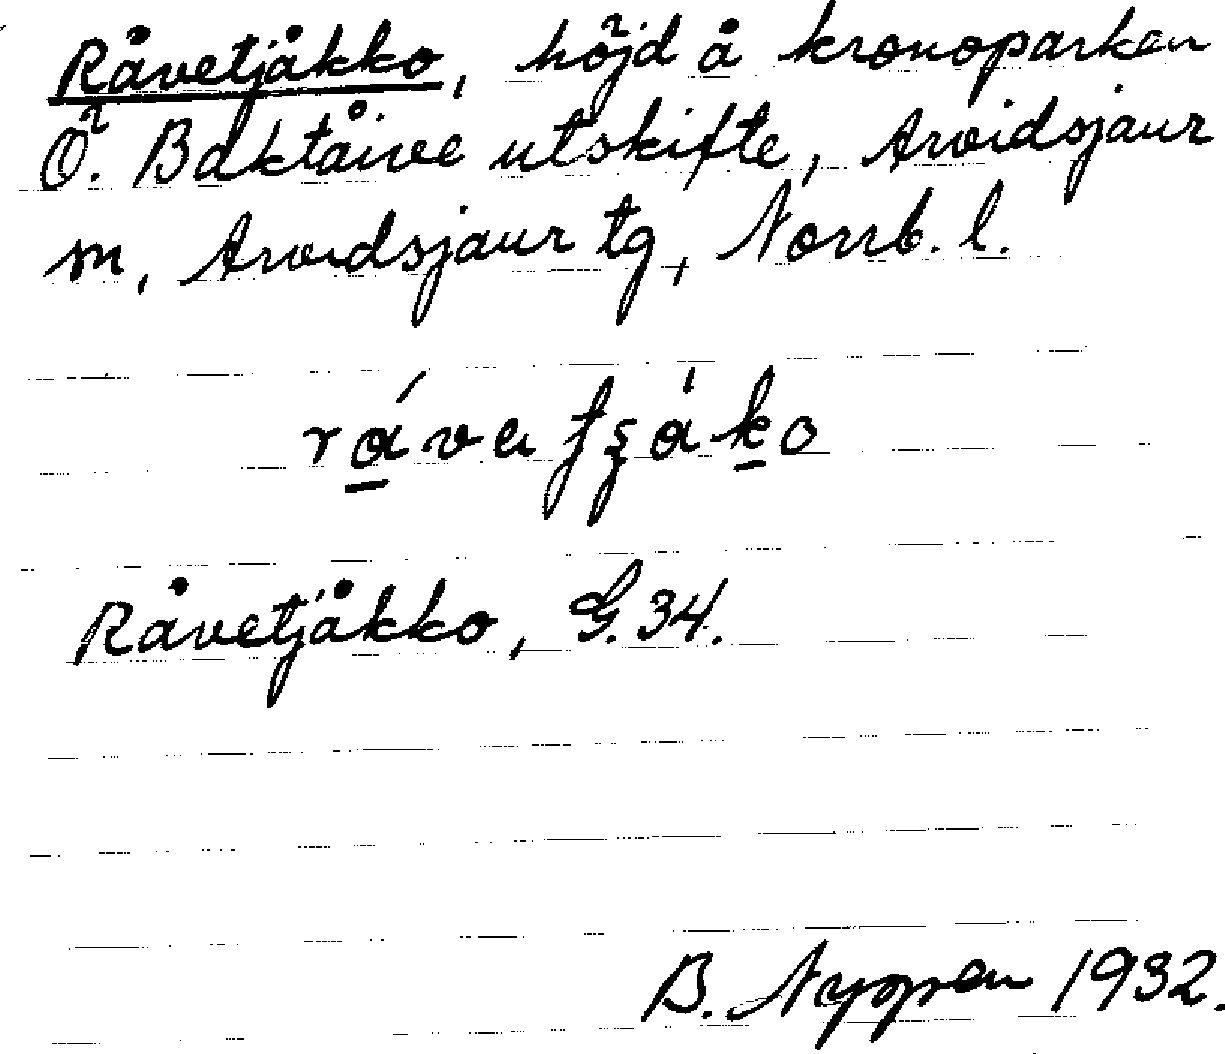 Råvetjåkko, höjd å kronoparken
Ö. Baktåive utskifte, Arvidsjaur
m, Arvidsjaur tg, Norrb. l.
Råvetjåkko, G. 34.
B. Nygren 1932.